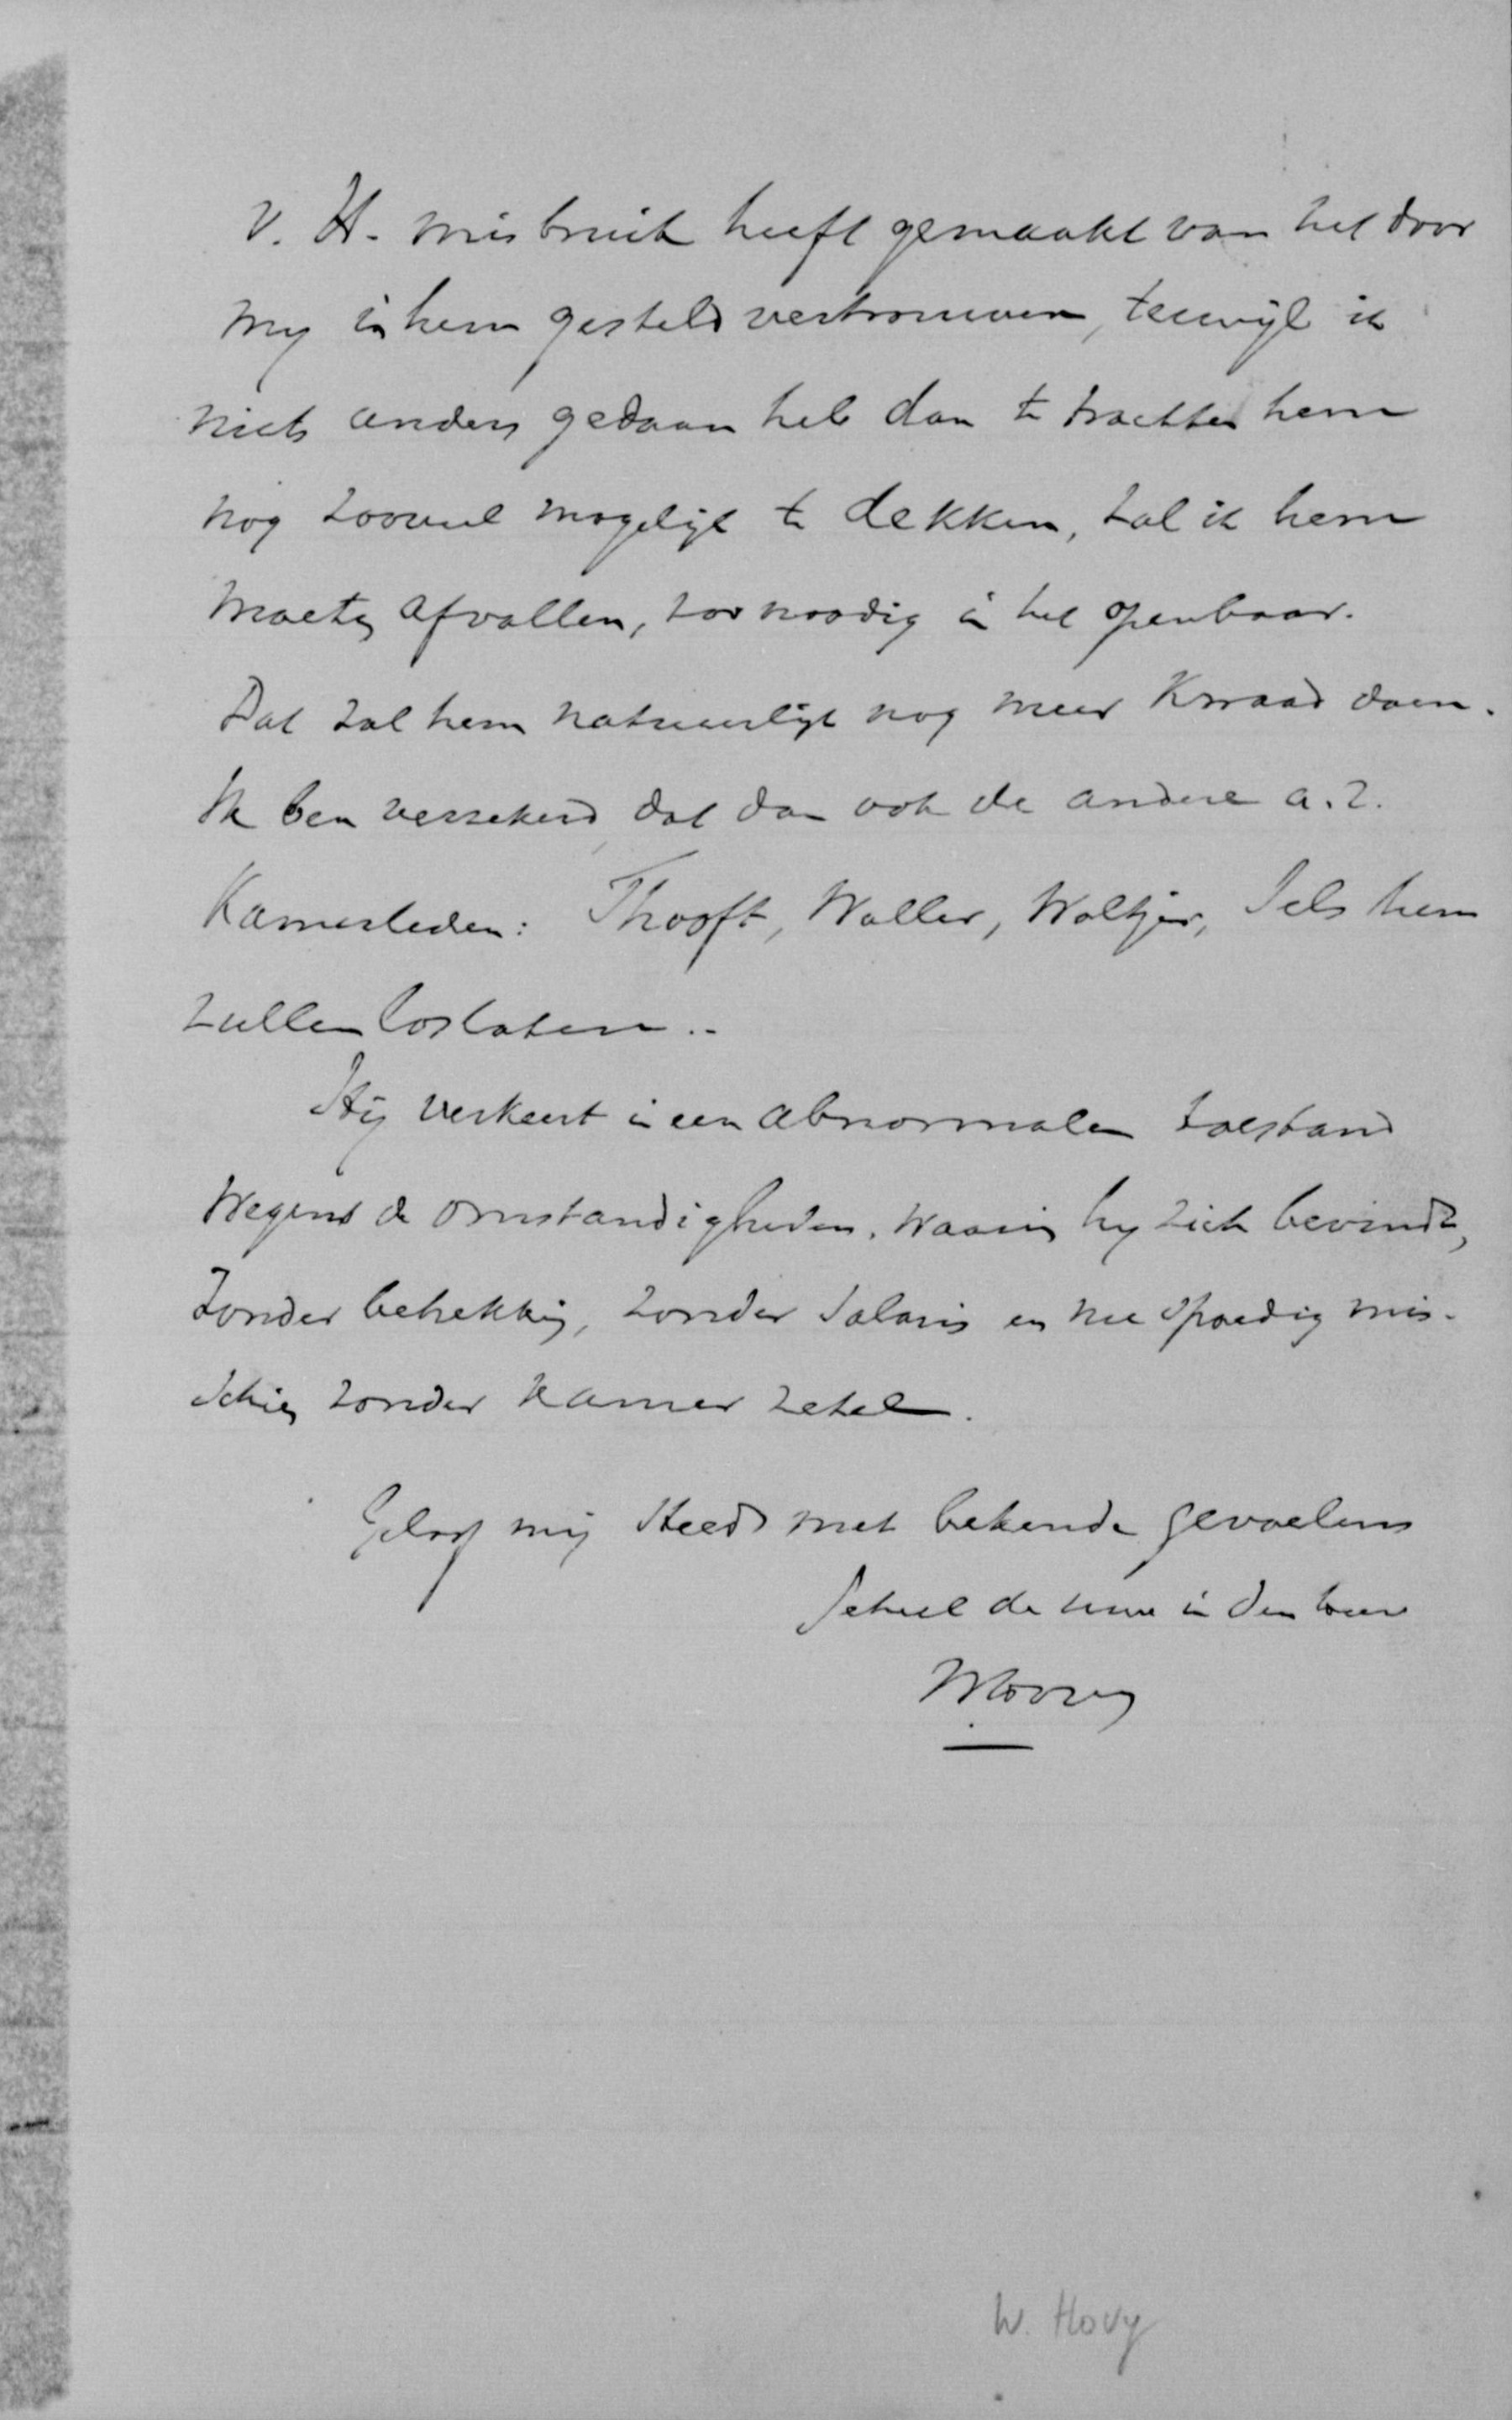 V. H. misbruik heeft gemaakt van het door
my in hem gesteld vertrouwen, terwijl ik
niets anders gedaan heb dan te trachten hem
nog zooveel mogelijk te dekken, zal ik hem
moeten afvallen, zoo noodig in het openbaar.
Dat zal hem natuurlijk nog meer kwaad doen.
Ik ben verzekerd, dat dan ook de andere a.r.
Kamerleden: Thooft, Waller, Woltjer, hem
zullen loslaten..
Hij verkeert in een abnormalen toestand
wegens de omstandigheden, waarin hy zich bevindt,
Zonder betrekking, zonder salaris en nu spoedig mis-
schien zonder Kamer zetel.
Geloof mij steeds met bekende gevoelens
Geheel de uwe in den Heer
WHovy
W. Hovy